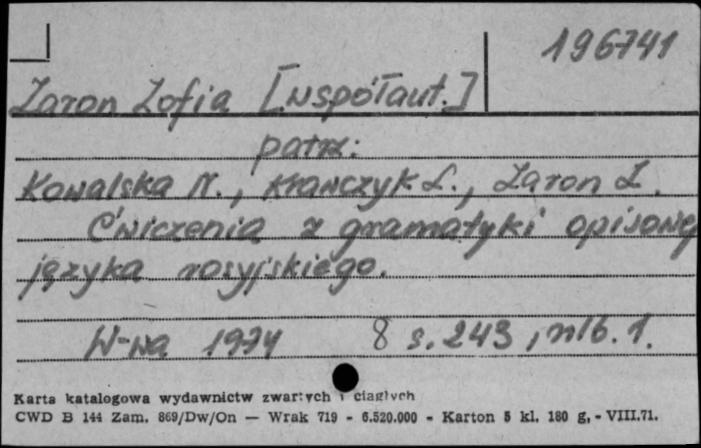 196741
Zaron Zofia [współaut.]
patrz:
Kowalska N., Krawczyk L., Zaron Z.
Ćwiczenia z gramatyki opisowej
języka rosyjskiego.
W-wa 1974 8 s. 243, nlb. 1.
Karta katalogowa wydawnictw zwartych i ciągłych
CWD B 144 Zam. 869/Dw/On — Wrak 719 - 6.520.000 - Karton 5 kl. 180 g, - VIII.71.